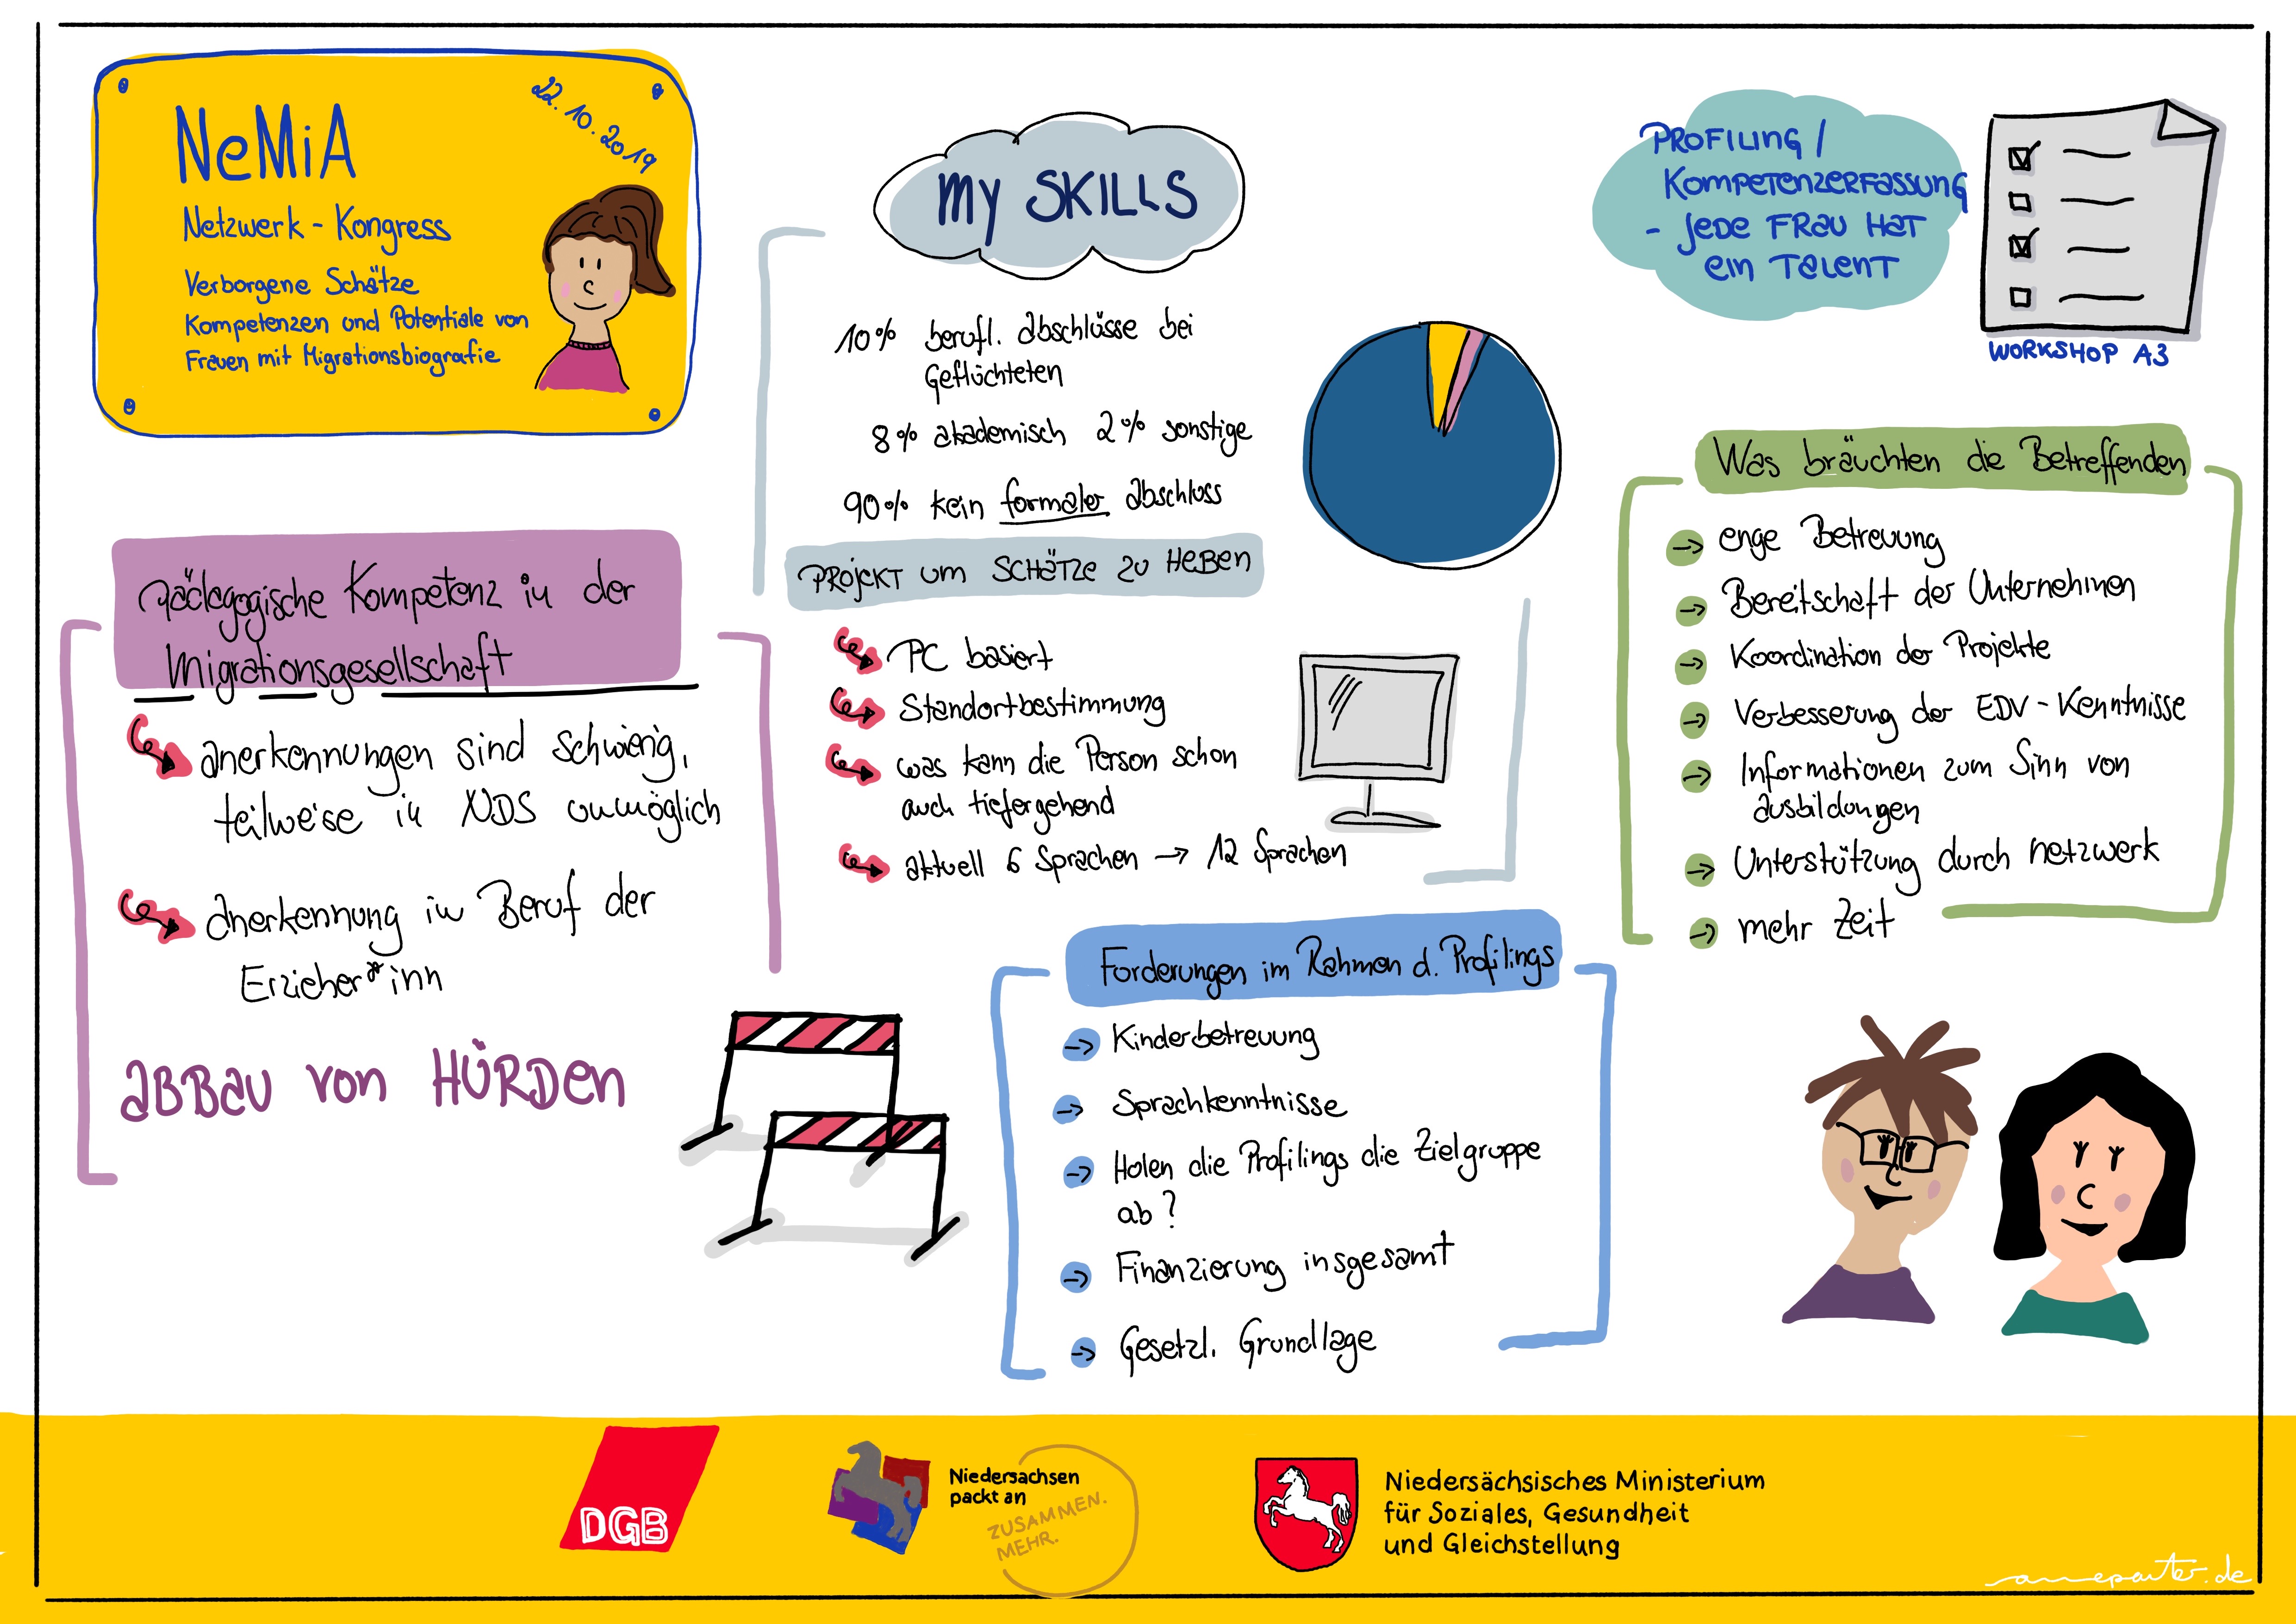 NeMiA
22.10.2019
Netzwerk - Kongress
Verborgene Schätze
Kompetenzen und Potentiale von
Frauen mit Migrationsbiografie
Pädagogische Kompetenz in der
Migrationsgesellschaft
Anerkennungen sind schwierig,
teilweise in NDS unmöglich
Anerkennung im Beruf der
Erzieher*inn
ABBAU VON HÜRDEN
MY SKILLS
10% berufl. Abschlüsse bei
Geflüchteten
8% akademisch 2% sonstige
90% kein formaler Abschluss
PROJEKT UM SCHÄTZE ZU HEBEN
PC basiert
Standortbestimmung
was kann die Person schon
auch tiefergehend
aktuell 6 Sprachen → 12 Sprachen
Forderungen im Rahmen d. Profilings
→ Kinderbetreuung
→ Sprachkenntnisse
→ Holen die Profilings die Zielgruppe
ab?
→ Finanzierung insgesamt
→ Gesetzl. Grundlage
PROFILING /
KOMPETENZERFASSUNG
- JEDE FRAU HAT
EIN TALENT
WORKSHOP A3
Was bräuchten die Betreffenden
→ enge Betreuung
→ Bereitschaft der Unternehmen
→ Koordination der Projekte
→ Verbesserung der EDV - Kenntnisse
→ Informationen zum Sinn von
Ausbildungen
→ Unterstützung durch Netzwerk
→ mehr Zeit
DGB
Niedersachsen
packt an
ZUSAMMEN.
MEHR.
Niedersächsisches Ministerium
für Soziales, Gesundheit
und Gleichstellung